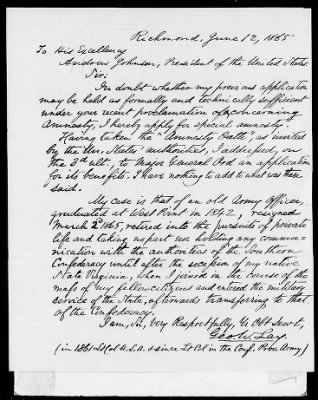 Richmond, June 12, 1865
To His Excellency
Andrew Johnson, President of the United States
Sir:
In doubt whether my previous application
may be held as formally and technically sufficient
under your recent proclamation concerning
Amnesty, I hereby apply for special amnesty.
Having taken the "Amnesty Oath", as
by the Un. States' authorities, I addressed, on
the 3d ult., to Major General Ord an application
for its benefits. I have nothing to add to what was there
said.
My case is that of an old Army Officer,
graduated at West Point in 1842, resigned
March 2d 1861, retired into the pursuits of private
life and taking no part nor holding any commu-
nication with the authorities of the Southern
Confederacy until after the secession of my native
State Virginia, when I joined in the course of the
mass of my fellow citizens and entered the military
service of the State, afterwards transferring to that
of the Confederacy.
I am, Sir, Very Respectfully, Yr Obt Servt,
Geo W. Lay.
(in 1861 Lt Col U.S.A. & since Lt Col in the Conf. Army)